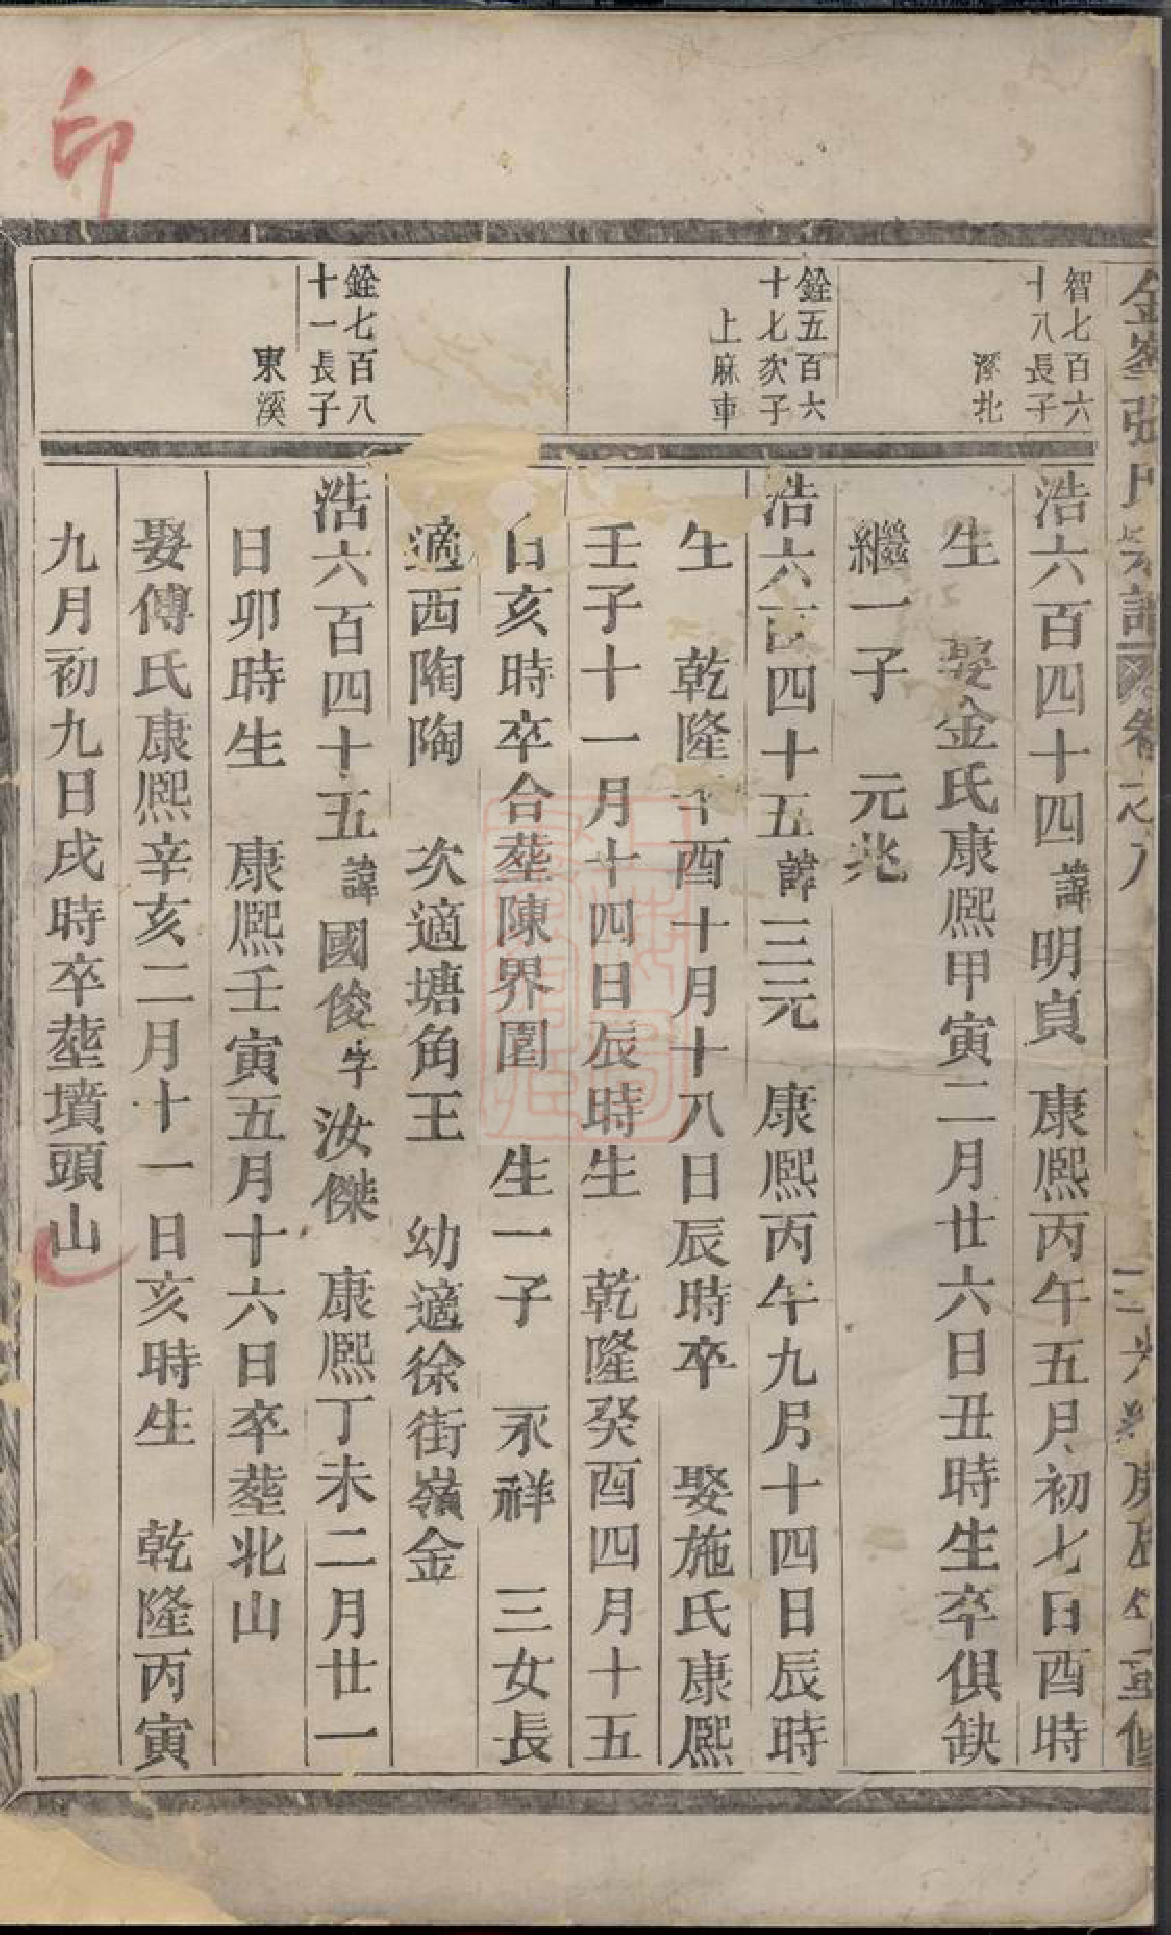 印
智七百六
十八長子
浩六百四十四諱明貞 康熙丙午五月初七日酉時
生 娶金氏康熙甲寅二月廿六日丑時生卒俱缺
繼一子 元兆
銓五百六
十七次子
上麻車
浩六百四十五諱三元 康熙丙午九月十四日辰時
生 乾隆 酉十月十八日辰時卒 娶施氏康熙
壬子十一月十四日辰時生 乾隆癸酉四月十五
日亥時卒合塟陳界園 生一子 永祥 三女長
適西陶陶 次適塘角王 幼適徐街嶺金
銓七百八
十一長子
東溪
浩六百四十五諱國俊字汝傑 康熙丁未二月廿一
日卯時生 康熙壬寅五月十六日卒塟北山
娶傅氏康熙辛亥二月十一日亥時生 乾隆丙寅
九月初九日戌時卒塟墳頭山